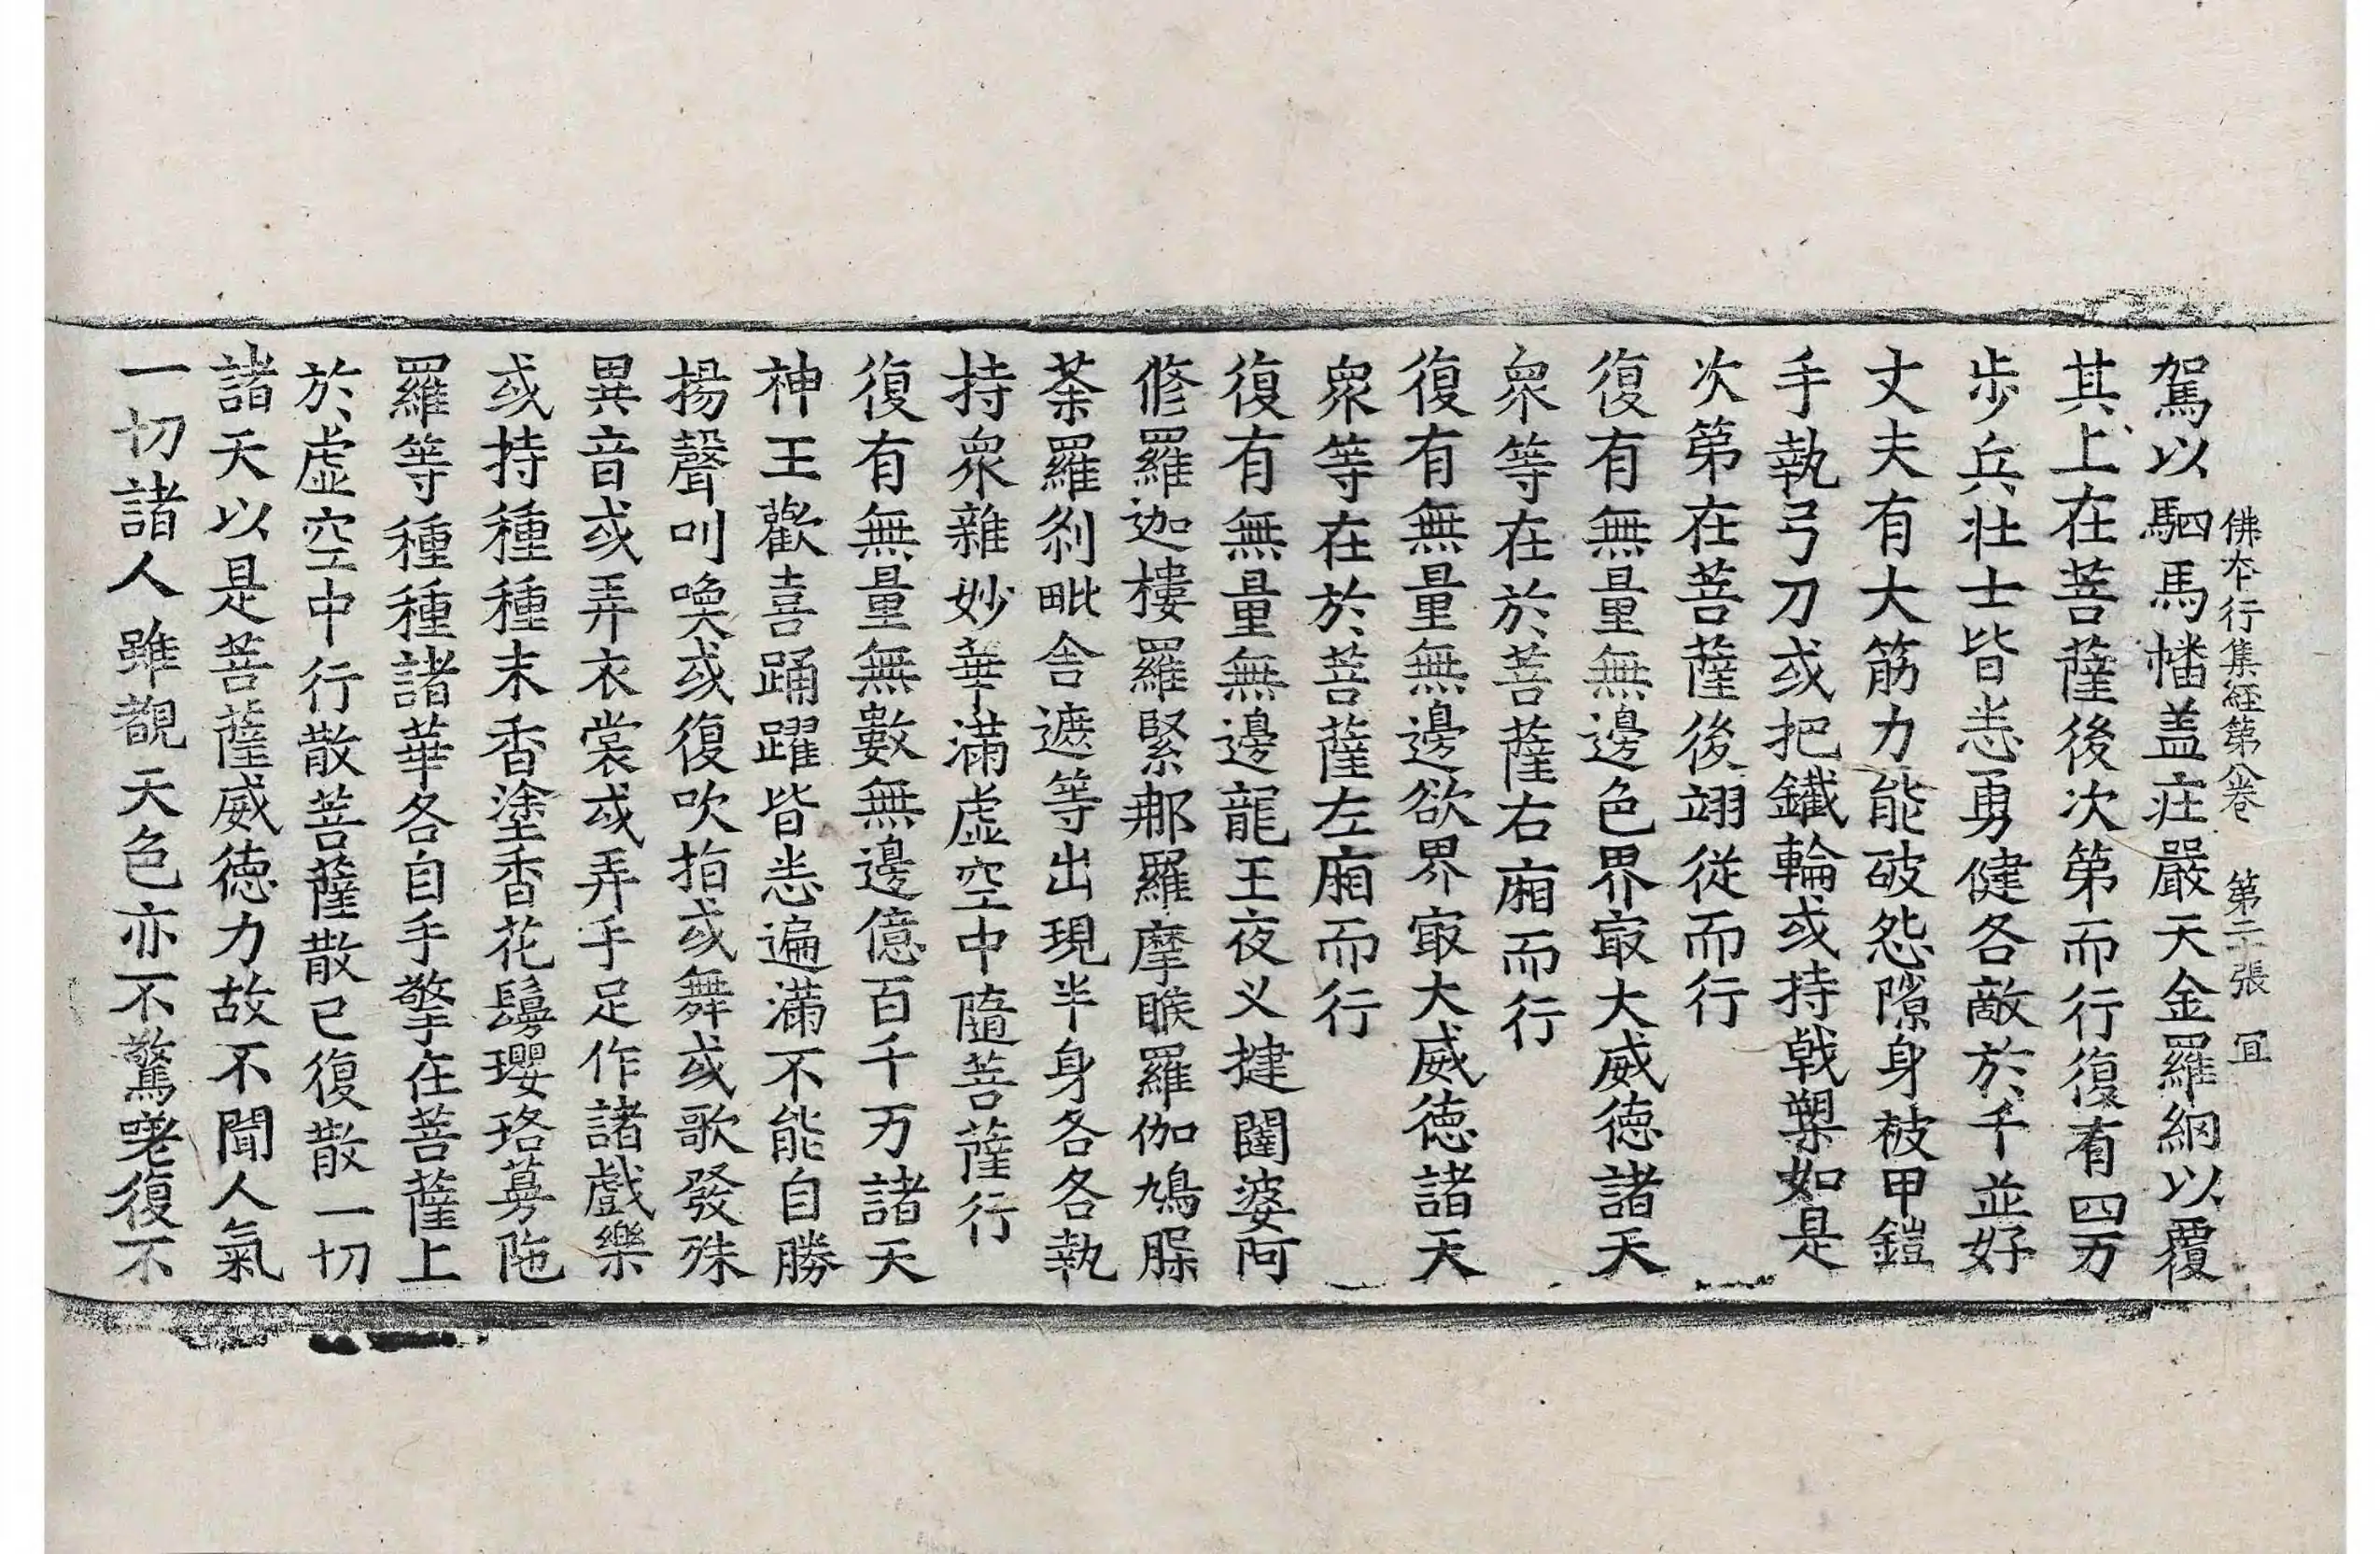 佛本行集經第八卷 第二十張 冝
駕以駟馬幡盖庄嚴天金羅網以覆
其上在菩薩後次第而行復有四万
步兵壯士皆悉勇健各敵於千並好
丈夫有大筋力能破怨隙身被甲鎧
手執弓刀或把鐵輪或持戟槊如是
次第在菩薩後翊從而行
復有無量無邊色界㝡大威德諸天
衆等在於菩薩右廂而行
復有無量無邊欲界㝡大威德諸天
衆等在於菩薩左廂而行
復有無量無邊龍王夜叉揵闥婆阿
修羅迦樓羅緊那羅摩睺羅伽鳩脲
茶羅剎毗舍遮等出現半身各各執
持衆雜妙華滿虛空中隨菩薩行
復有無量無數無邊億百千万諸天
神王歡喜踊躍皆悉遍滿不能自勝
揚聲叫喚或復吹指或舞或歌發殊
異音或弄衣裳或弄手足作諸戲樂
或持種種末香塗香花鬘瓔珞蔓陁
羅等種種諸華各自手擎在菩薩上
於虛空中行散菩薩散已復散一切
諸天以是菩薩威德力故不聞人氣
一切諸人雖覩天色亦不驚嗟復不